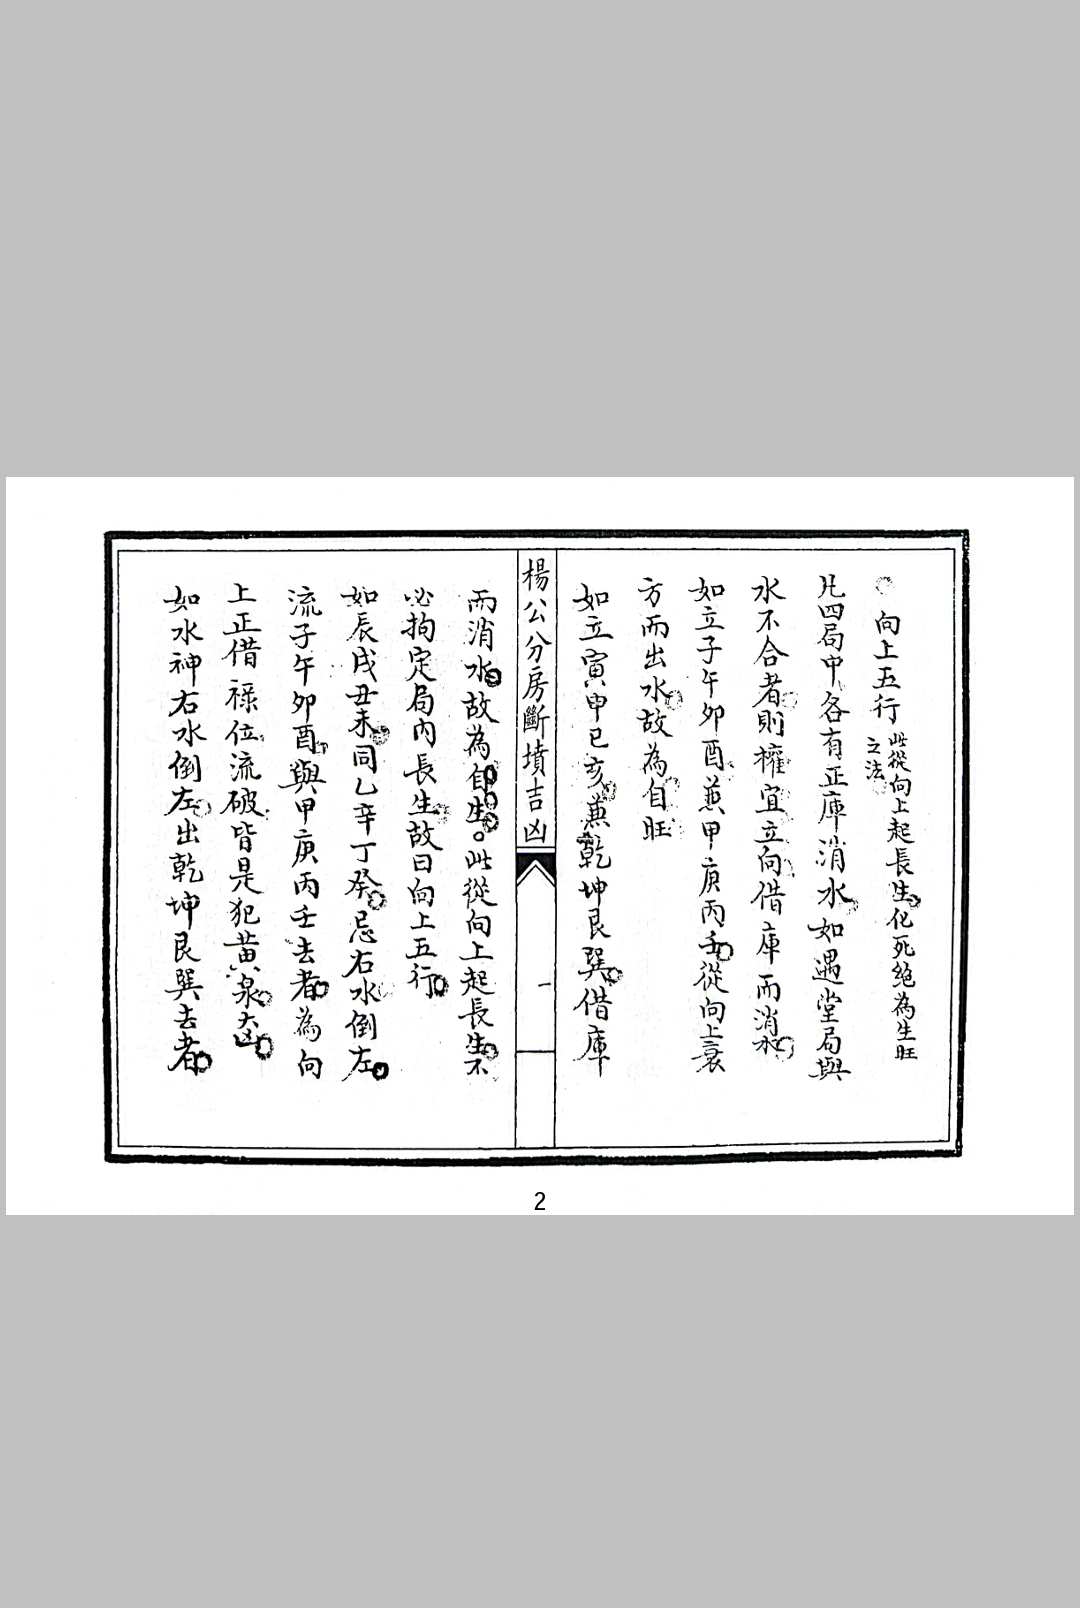 向上五行 此從向上起長生化死絕為生旺
之法
凡四局中各有正庫消水如遇堂局與
水不合者則權宜立向借庫而消水
如立子午卯酉兼甲庚丙壬從向上衰
方而出水故為自旺
如立寅申巳亥兼乾坤艮巽借庫
楊公分房斷墳吉凶
一
而消水故為自生。此從向上起長生不
必拘定局內長生故曰向上五行
如辰戌丑未同乙辛丁癸忌右水倒左
流子午卯酉與甲庚丙壬去者為向
上正借祿位流破皆是犯黃泉大凶
如水神右水倒左出乾坤艮巽去者
2